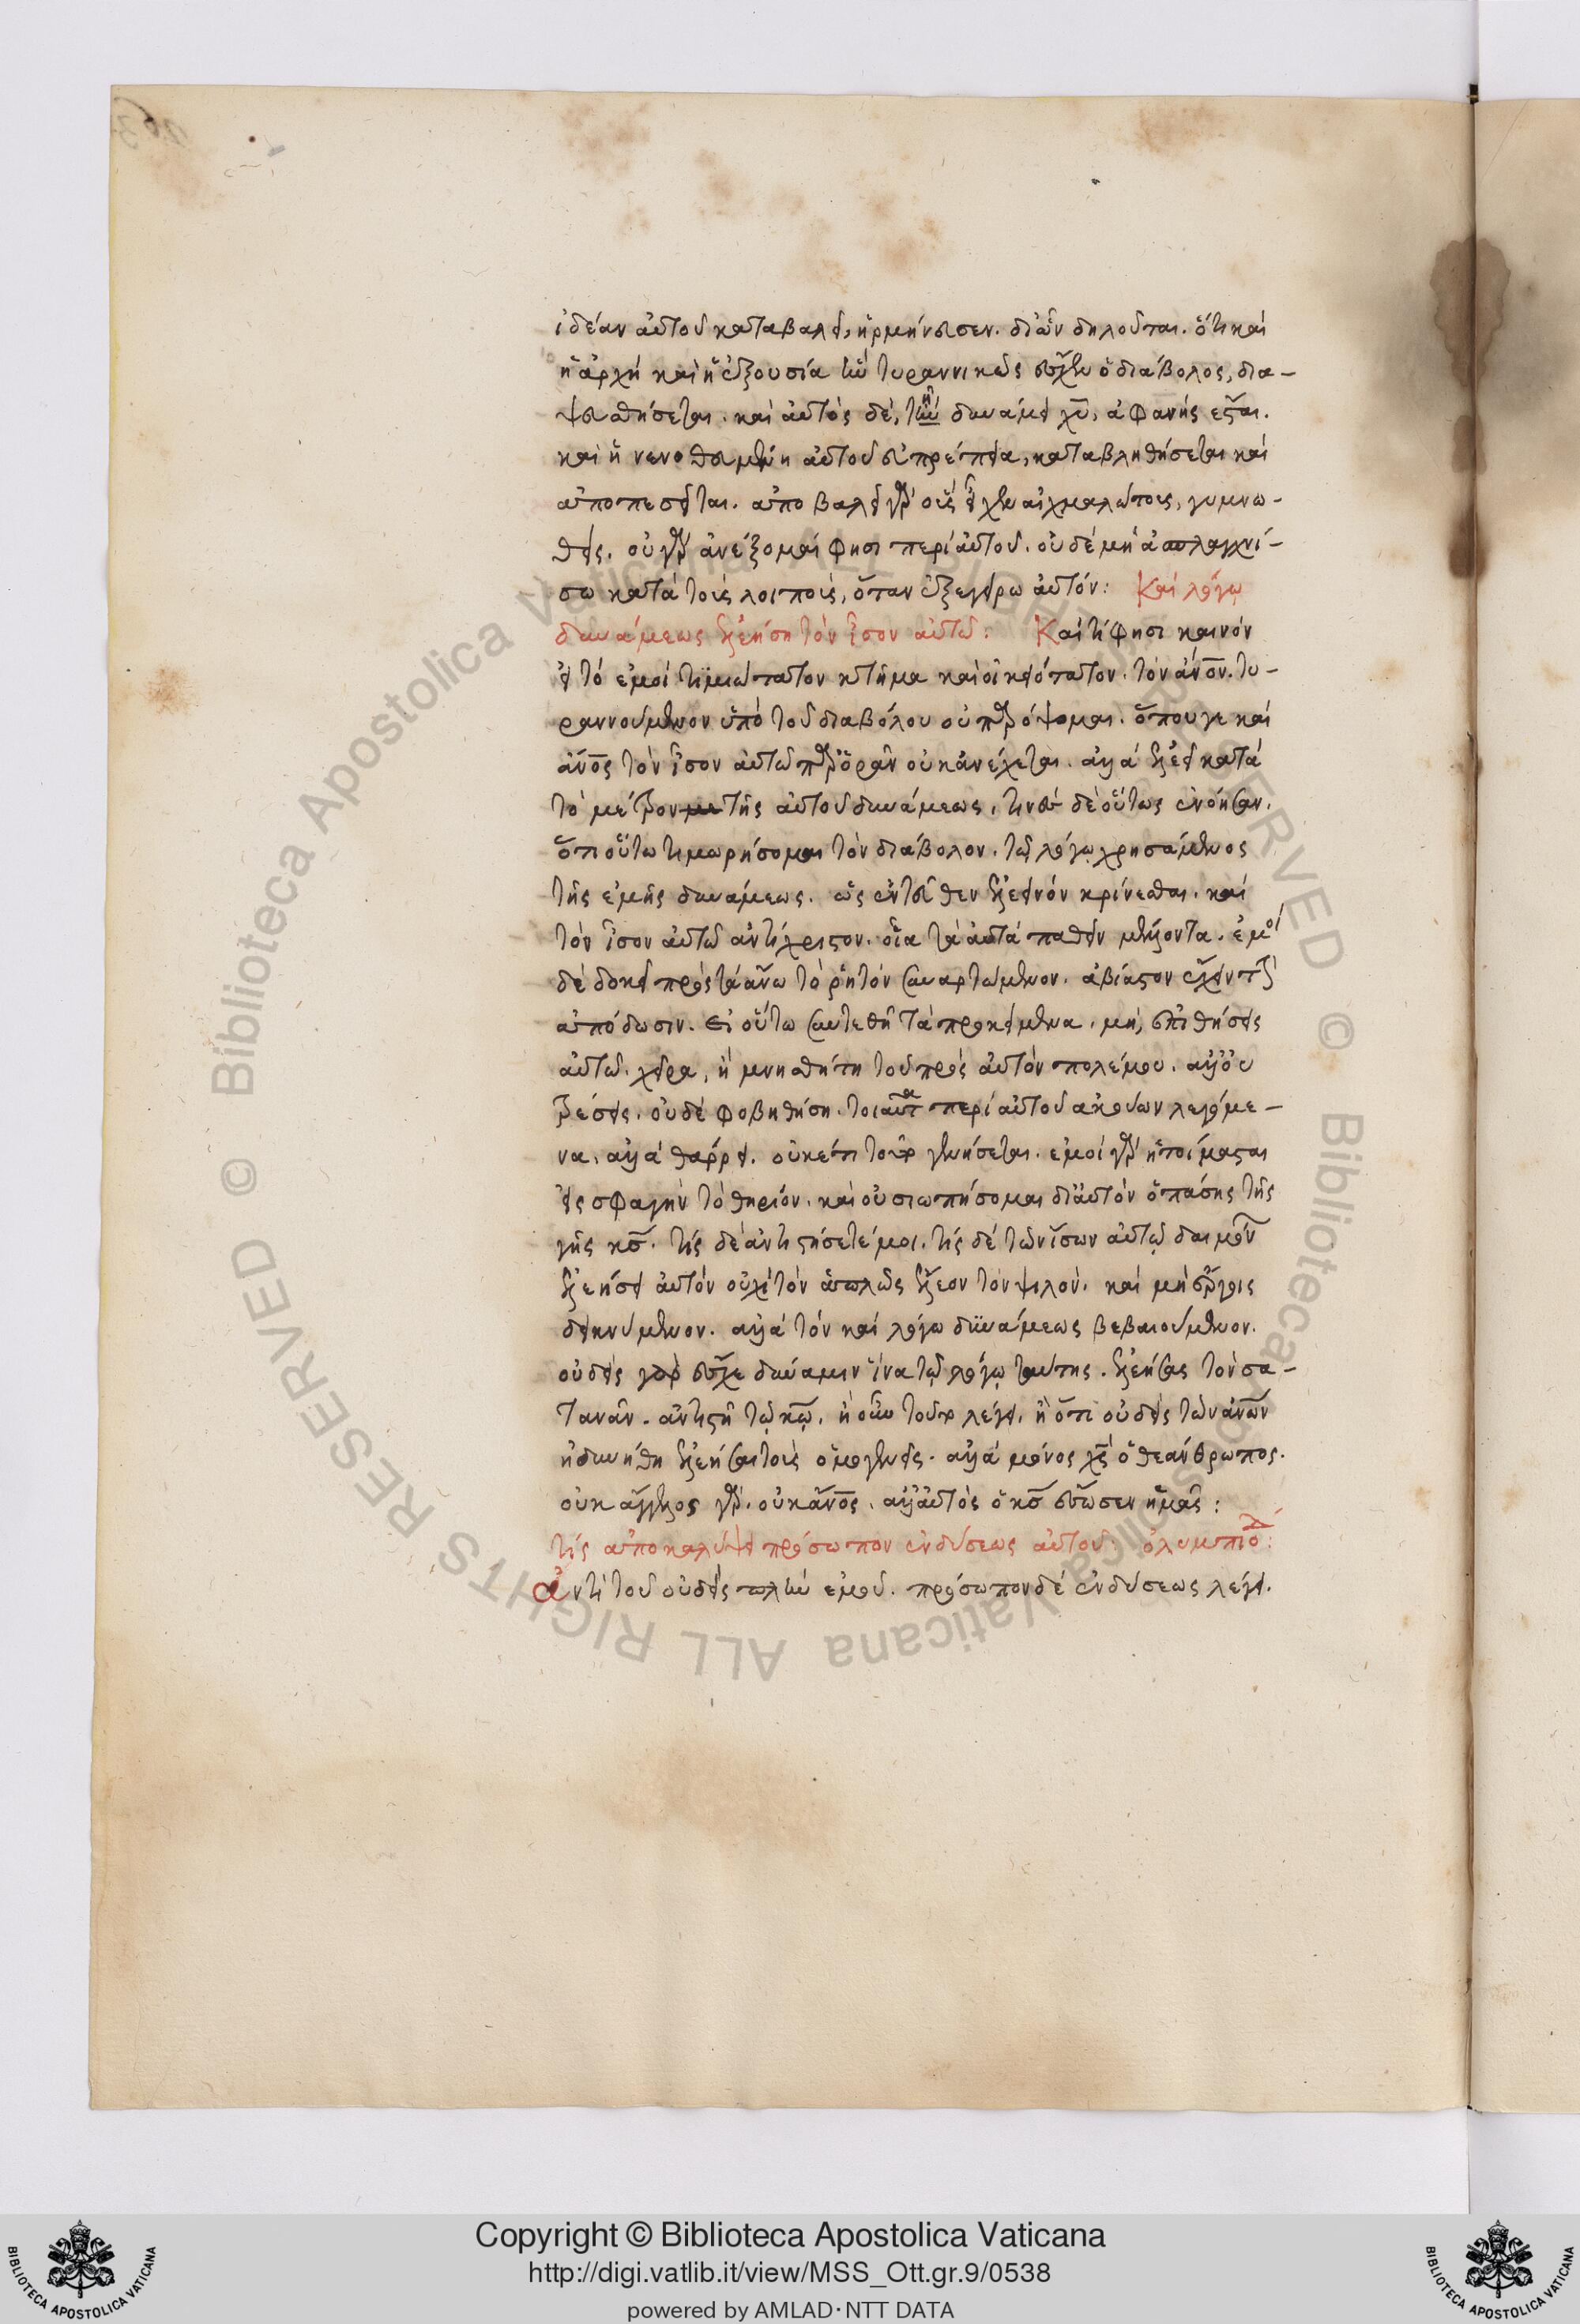 ἰδέαν αὐτοῦ καταβαλεῖ, ἡρμήνευσεν. δι ὧν δηλοῦται. ὅτι καὶ
ἡ ἀρχὴ καὶ ἡ ἐξουσία ἣν τυραννικῶς ἔσχεν ὁ διάβολος, δια-
ψευσθήσεται. καὶ αὐτὸς δὲ, τῇ δυνάμει χῡ, ἀφανὴς ἔσται.
καὶ ἡ νενοθευμένη αὐτοῦ εὐπρέπεια, καταβληθήσεται καὶ
ἀποπεσεῖται. ἀποβαλεῖ γὰρ οὓς εἶχεν αἰχμαλώτους, γυμνω-
θείς. οὐ γὰρ ἀνέξομαί φησι περὶ αὐτοῦ. οὐδὲ μὴ ἀσπλαγχνί-
σω κατὰ τοὺς λοιποὺς, ὅταν ἐξεγείρω αὐτόν: Καὶ λόγω
δυνάμεως ἐλεήση τὸν ἴσον αὐτῶ: Καὶ τί φησι καινὸν
εἰ τὸ ἐμοὶ τιμιώτατον κτῆμα καὶ οἰκειότατον. τὸν ἀν̅ο̅ν̅. τυ-
ραννούμενον ὑπὸ τοῦ διαβόλου οὐ παρόψομαι. ὅπου γε καὶ
ἀν̅ο̅ς̅ τὸν ἴσον αὐτῶ παρορᾶν οὐκ ἀνέχεται. ἀλλὰ ἐλεεῖ κατὰ
τὸ μέτρον τῆς αὐτοῦ δυνάμεως. τινὲς δὲ οὕτως ἐνόησαν.
ὅτι οὕτω τιμωρήσομαι τὸν διάβολον. τῷ λόγῳ χρησάμενος
τῆς ἐμῆς δυνάμεως. ὡς ἐντεῦθεν ἐλεεινὸν κρίνεσθαι. καὶ
τὸν ἴσον αὐτῶ ἀντίχριστον. οἷα τὰ αὐτὰ παθεῖν μέλλοντα. ἐμοὶ
δὲ δοκεῖ πρὸς τὰ ἄνω τὸ ῥητὸν συναρτώμενον. ἀβίαστον ἔχειν τὴν
ἀπόδοσιν. Εἰ οὕτω συντεθῇ τὰ προκείμενα. μὴ, ἐπιθήσεις
αὐτῶ. χεῖρα, ἢ μνησθήτι τοῦ πρὸς αὐτὸν πολέμου. ἀλλ ὁ
τρέσῃς. οὐδὲ φοβηθήση. τοιαῦτα περὶ αὐτοῦ ἀκούων λεγόμε-
να. ἀλλὰ θάρρει. οὐκέτι τοῦτο γενήσεται. ἐμοὶ γὰρ ἡτοίμασται
εἰς σφαγὴν τὸ θηρίον. καὶ οὐ σιωπήσομαι δι αὐτὸν ὁ πάσης τῆς
γῆς κς̅. τίς δὲ ἀντιστήσεταί μοι. τίς δὲ τῶν ἴσων αὐτῷ δαιμόνων
ἐλεήσει αὐτὸν οὐχὶ τὸν ἁπλῶς ἔλεον τὸν ψιλὸν. καὶ μὴ ἔργοις
δεικνύμενον. ἀλλὰ τὸν καὶ λόγω δυνάμεως βεβαιούμενον.
οὐδεὶς γὰρ ἔσχε δύναμιν ἵνα τῷ λόγῳ ταύτης. ἐλεήσας τὸν σα-
τανᾶν. ἀντιστῇ τῷ κῷ. ἢ οὖν τοῦτο λέγει, ἢ ὅτι οὐδεὶς τῶν ἀν̅ω̅ν̅
ἠδυνήθη ἐλεῆσαι τοὺς ὁμογενεῖς. ἀλλὰ μόνος χς̅ ὁ θεάνθρωπος.
οὐκ ἄγγελος γὰρ. οὐκ ἀν̅ο̅ς̅. ἀλλ αὐτὸς ὁ κς̅ ἔσωσεν ἡμᾶς:
τίς ἀποκαλύψει πρόσωπον ἐνδύσεως αὐτοῦ: ὀλυμπιοδ:
ἀντὶ τοῦ οὐδεὶς πλὴν ἐμοῦ. πρόσωπον δὲ ἐνδύσεως λέγει.
Copyright © Biblioteca Apostolica Vaticana
http://digi.vatlib.it/view/MSS_Ott.gr.9/0538
powered by AMLAD·NTT DATA